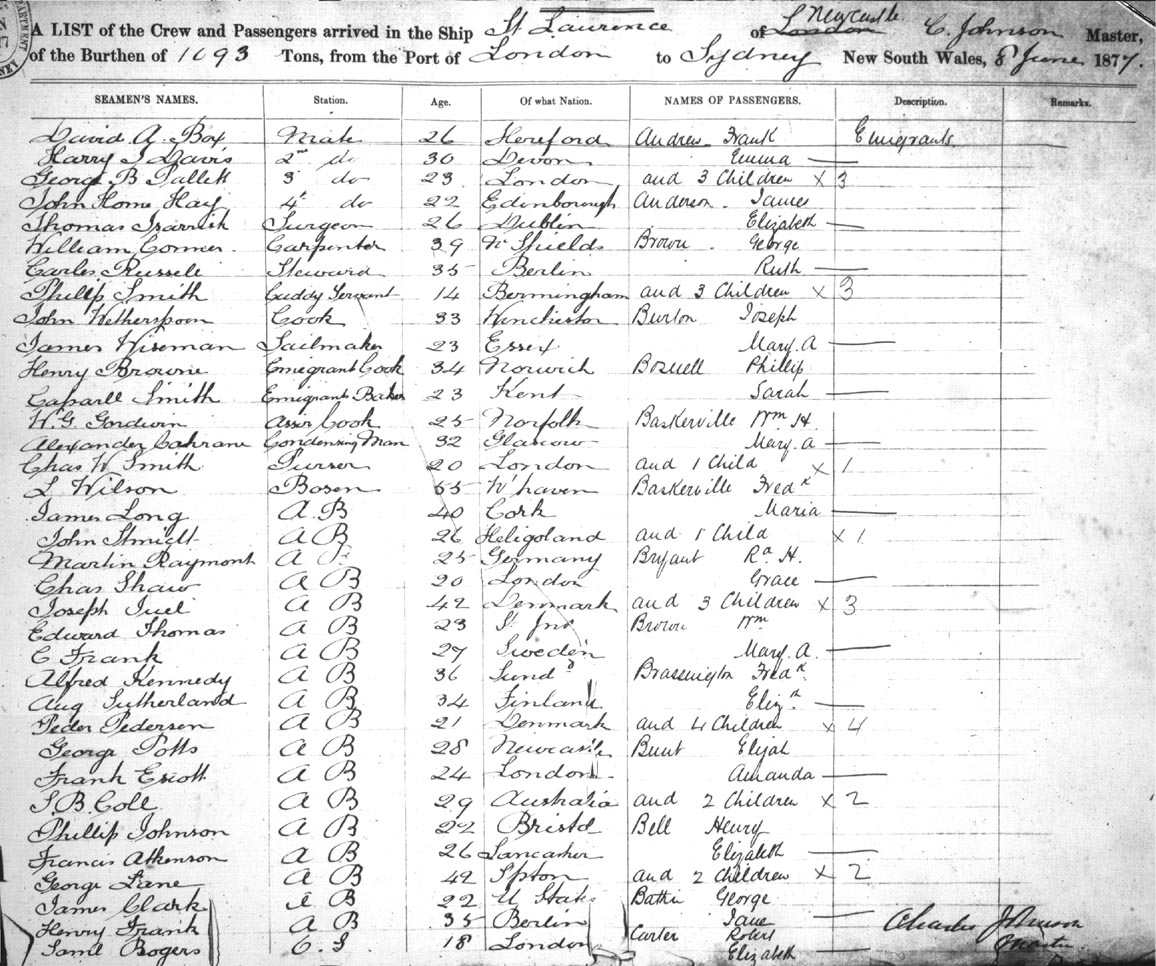 A LIST of the Crew and Passengers arrived in the Ship St Laurence of London S Newcastle C. Johnson Master,
of the Burthen of 1093 Tons, from the Port of London to Sydney New South Wales, 8 June 1877.
SEAMEN'S NAMES. Station. Age. Of what Nation. NAMES OF PASSENGERS. Description. Remarks.
David A. Box Mate 26 Hereford Andrew Frank Emigrants
Harry S Davis 2nd do 30 Devon Emma —
George B Pallett 3 do 23 London and 3 Children x 3
John Home Hay 4t do 22 Edinborough Anderson. James
Thomas Surgeon 26 Dublin Elizabeth —
William Conner Carpenter 39 N. Shields Brown. George
Carles Russell Steward 35 Berlin Ruth —
Phillip Smith Cuddy Servant 14 Bermingham and 3 Children x 3
John Wetherspoon Cook 33 Winchester Burton Joseph
James Wiseman Sailmaker 23 Essex Mary. A —
Henry Browne Emigrant Cook 34 Norwich Bosuell Phillip
Smith Emigrants Baker 23 Kent Sarah —
W. G. Gordwin Asst Cook 25 Norfolk Baskerville Wm H.
Alexander Cahrane Condensing Man 32 Glascow Mary. a —
Chas W Smith Purser 20 London and 1 Child x 1
L Wilson Bosen 55 W'haven Baskerville Fredk
James Long A. B 40 Cork Maria —
John Shmidt A B 26 Heligoland and 1 Child x 1
Martin Raymont A 25 Germany Bryant Rd H.
Chas Shaw A B 20 London Grace —
Joseph Juel A B 42 Denmark and 3 Children x 3
Edward Thomas A B 23 St Jno Brown Wm
C Frank A B 27 Sweden Mary. A. —
Alfred Kennedy A B 36 Sundd Brassington Fredk.
Aug Sutherland A B 34 Finland Eliza —
Peder Pedersen A B 21 Denmark and 4 Children x 4
George Potts A B 28 Newcastle Bunt Elijah
Frank Escott A B 24 London Amanda —
S. B. Cole A B 29 Australia and 2 Children x 2
Phillip Johnson A B 22 Bristol Bell Henry
Francis Atkenson A B 26 Lancasher Elizabeth —
George Lane A B 42 and 2 Children x 2
James Clark A B 22 U States George
Henry Frank A B 35 Berlin Jane — Charles Johnson
Carter Robert Master
Saml Bogers O. S 18 London Elizabeth —